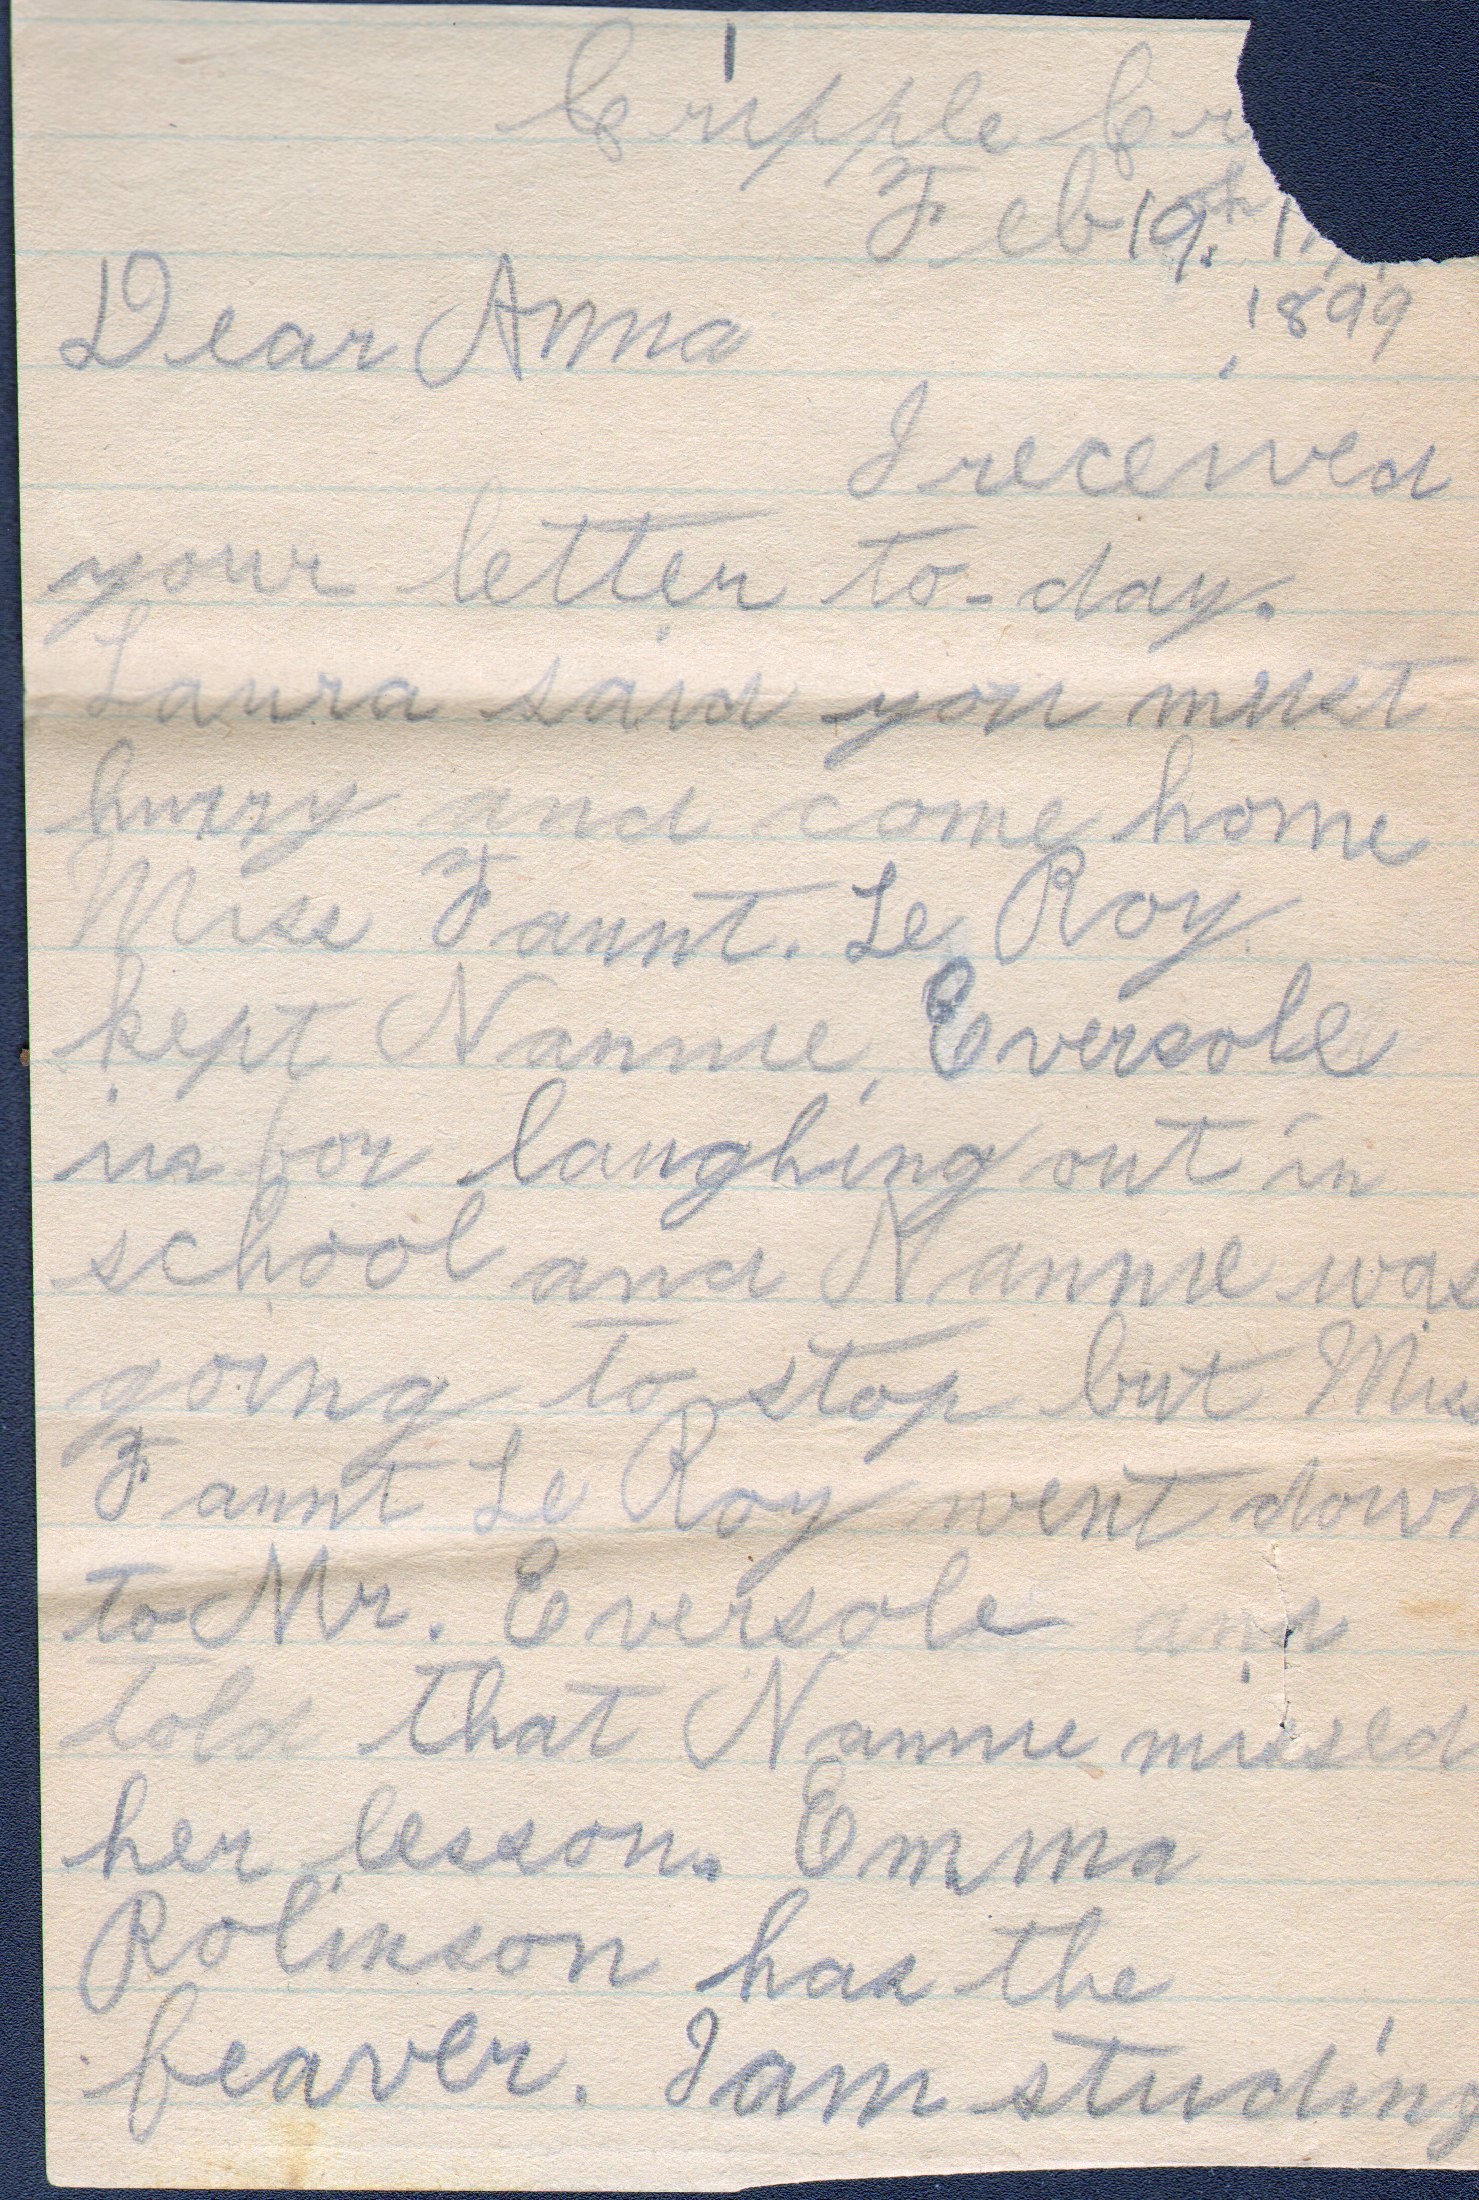 Cripple Cr
Feb 19th, 1
1899
Dear Anna
I received
your letter to-day.
Laura said you must
hurry and come home
Miss Faunt. Le Roy
kept Nannie Eversole
in for laughing out in
school and Nannie was
going to stop but Miss
Faunt Le Roy went down
to Mr. Eversole and
told that Nannie missed
her lesson. Emma
Rolinson has the
feaver. I am studing